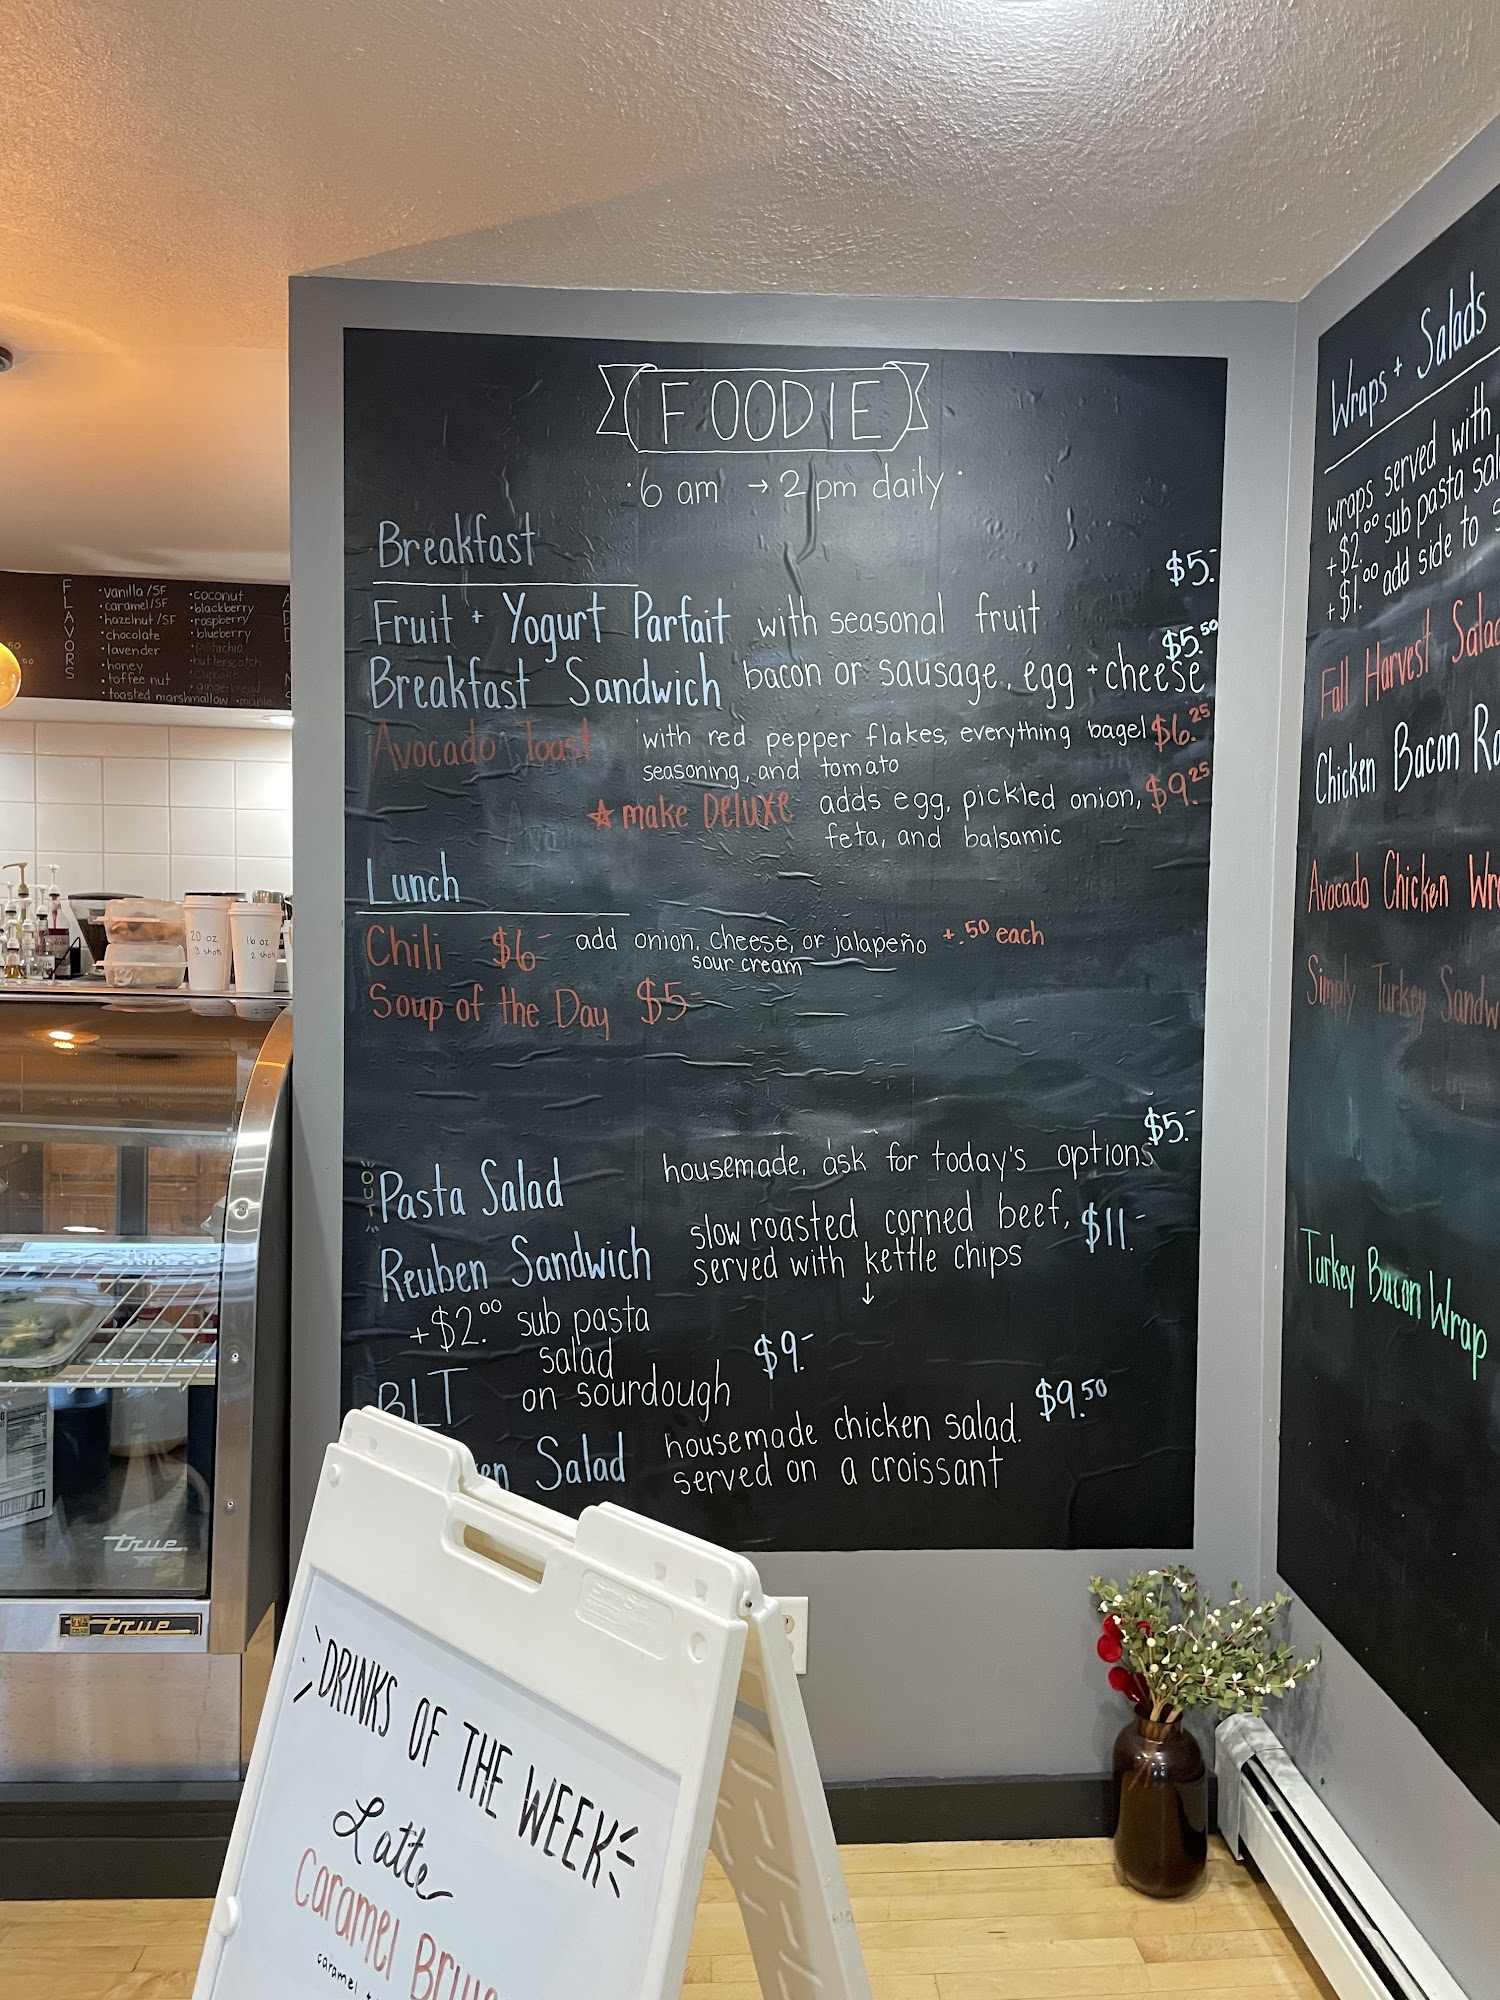 FOODIE
·6 am → 2 pm daily·
Breakfast
$5.-
Fruit + Yogurt Parfait with seasonal fruit
$5.50
Breakfast Sandwich bacon or sausage, egg + cheese
Avocado Toast with red pepper flakes, everything bagel $6.25
seasoning, and tomato
★ make Deluxe adds egg, pickled onion, $9.25
feta, and balsamic
Lunch
Chili $6- add onion, cheese, or jalapeño +.50 each
sour cream
Soup of the Day $5-
$5.-
OUT
Pasta Salad housemade, ask for today's options
Reuben Sandwich slow roasted corned beef, $11.-
served with kettle chips
↓
+$2.00 sub pasta
salad
BLT on sourdough $9.-
Salad housemade chicken salad. $9.50
served on a croissant
Wraps + Salads
wraps served with
+$2.00 sub pasta
+$1.00 add side to
Fall Harvest Salad
Chicken Bacon
Avocado Chicken
Simply Turkey
Turkey Bacon Wrap
FLAVORS
•vanilla/SF
•caramel/SF
•hazelnut/SF
•chocolate
•lavender
•honey
•toffee nut
•toasted marshmallow
•coconut
•blackberry
•raspberry
•blueberry
•pistachio
•butterscotch
•cupcake
•gingerbread
•maple
20 oz
3 shots
16 oz
2 shots
true
true
DRINKS OF THE WEEK
Latte
Caramel
caramel